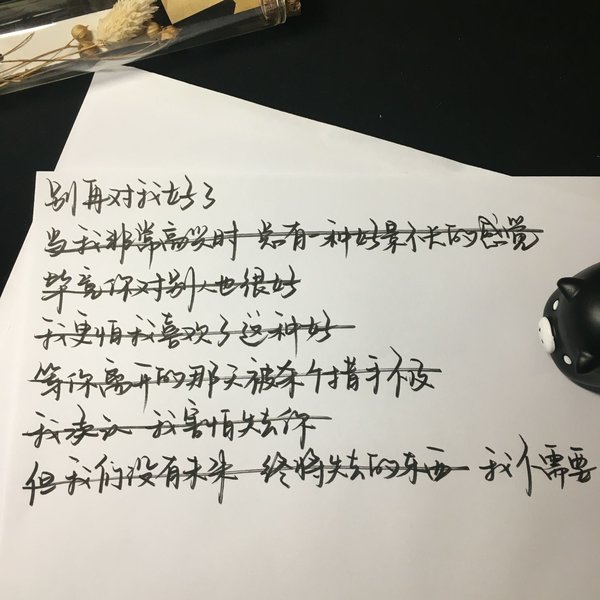 别再对我好了
当我非常高兴时 总有一种好景不长的感觉
毕竟你对别人也很好
我更怕我喜欢了这种好
等你离开的那天被杀个措手不及
我承认 我害怕失去你
但我们没有未来 终将失去的东西 我不需要